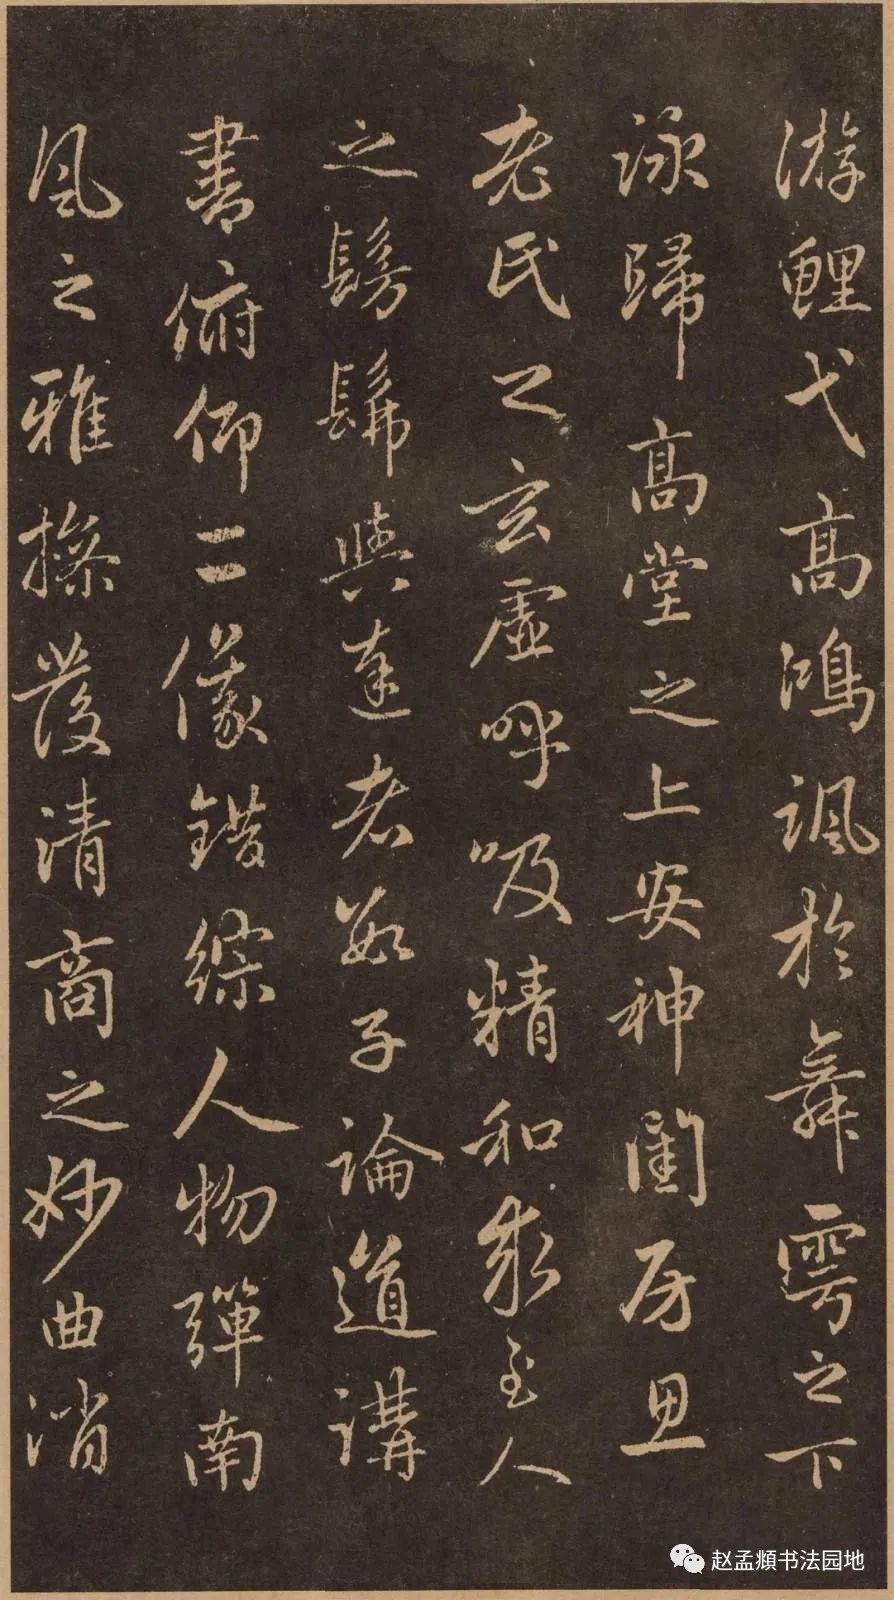 游鯉弋高鴻諷於舞雩之下
詠歸高堂之上安神閨房思
老氏之玄虛呼吸精和求至人
之髣髴與達者數子論道講
書俯仰二儀錯綜人物彈南
風之雅操發清商之妙曲消
赵孟頫书法园地